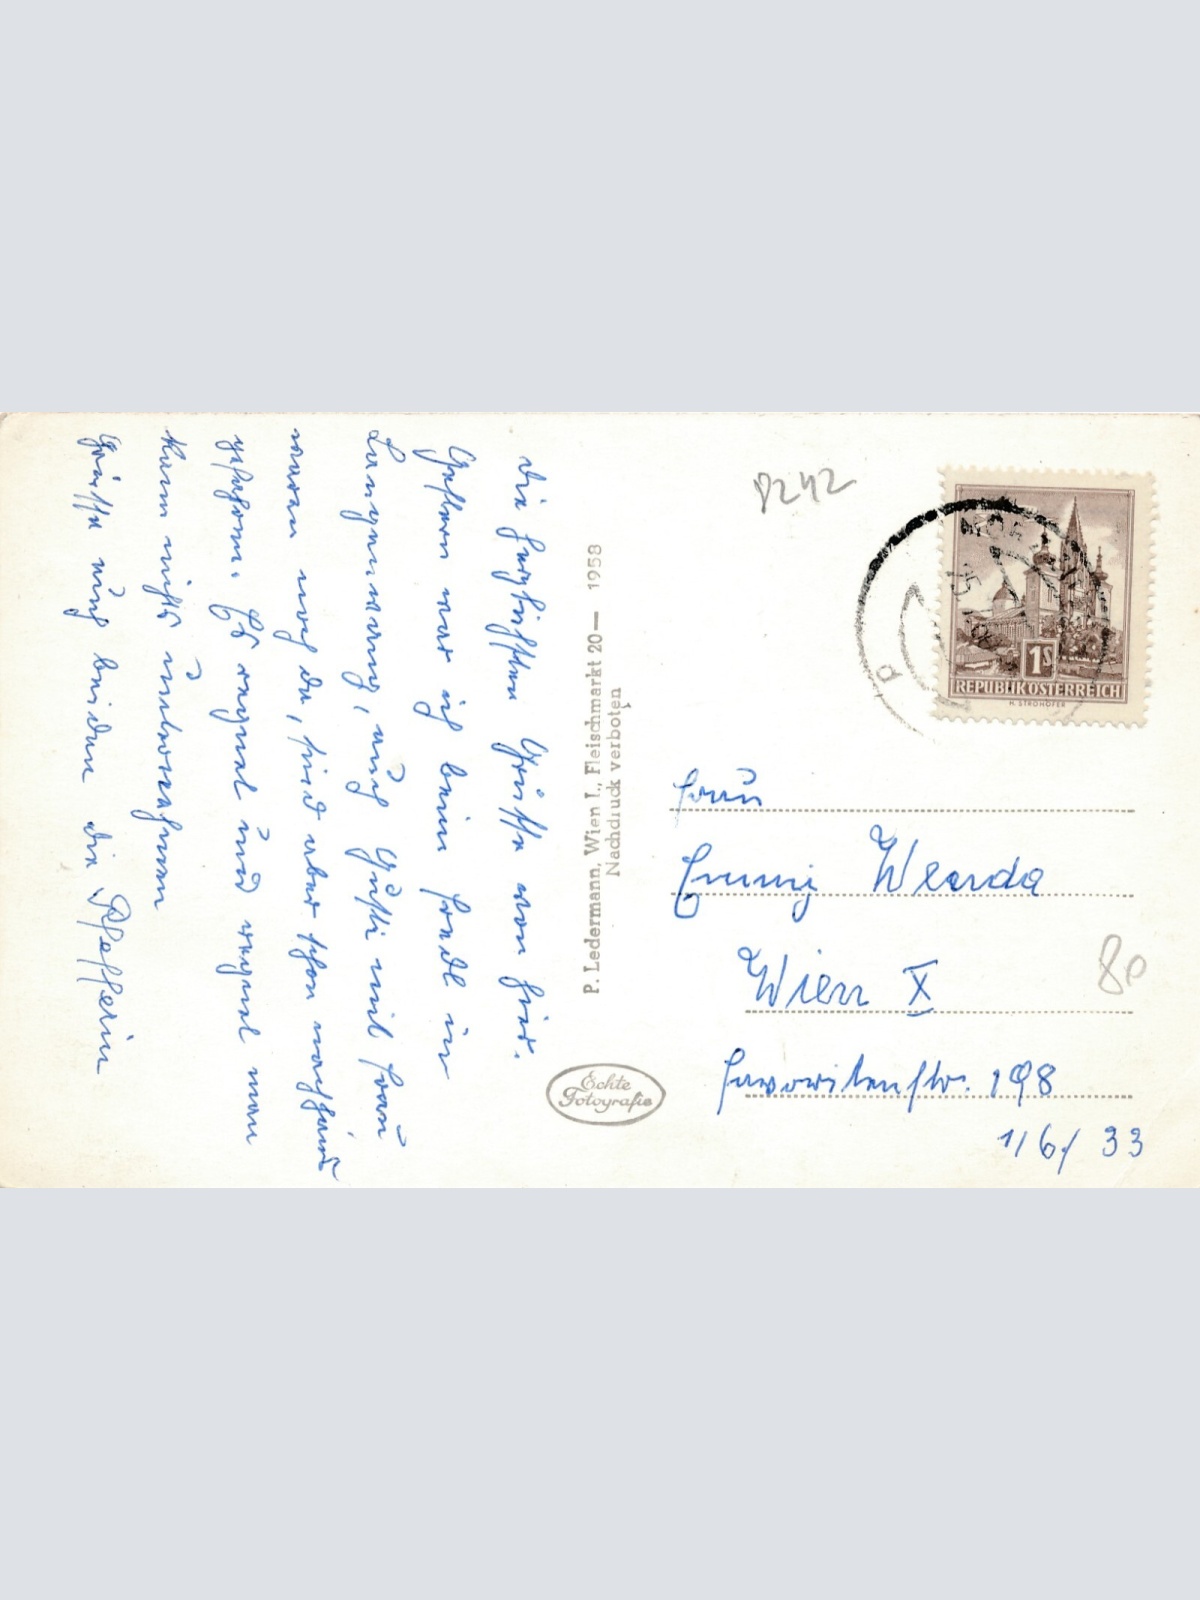 Die herzlichsten Grüsse von hier.
Gestern war ich beim Friedl in
Langenwang, auch Gusti mit Frau
waren noch da, sind aber schon nachhaus
gefahren. Es regnet und regnet man
kann nichts unternehmen
Grüsse auch beiden die Pfefferin
P. Ledermann, Wien I., Fleischmarkt 20— 1958
Nachdruck verboten
Echte
Fotografie
8242
1S
REPUBLIK OSTERREICH
H. STROHOFER
Frau
Emmy Wenda
Wien X
80
Favoritenstr. 198
1/6/33